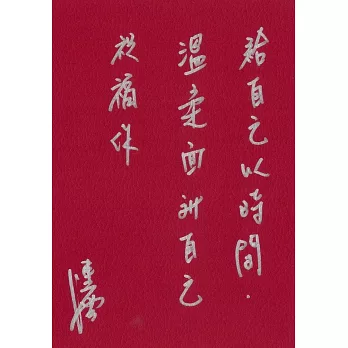 給自己以時間.
溫柔面對自己
祝福你